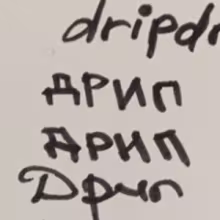 dripdr
ДРИП
ДРИП
Дрип